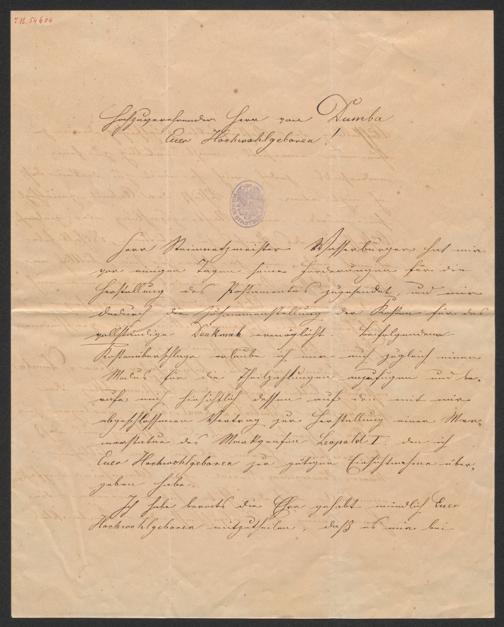 I.N. 54606
Hochzuverehrender Herr von Dumba
Euer Hochwohlgeboren!
Herr Steinmetzmeister Wasserburger hat mir
vor einigen Tagen seine Forderungen für die
Herstellung des Postamentes zugesendet, und mir
dadurch die Zusammenstellung der Kosten für das
vollständige Denkmal ermöglicht. Beifolgendem
Kostenüberschlage erlaube ich mir auch zugleich einen
Modus für die Theilzahlungen anzufügen und be-
rufe mich hinsichtlich dessen auf den mit mir
abgeschlossenen Vertrag zur Herstellung einer Mar-
morstatue des Markgrafen Leopold I, den ich
Euer Hochwohlgeboren zur gütigen Einsichtnahme über-
geben habe.
Ich habe bereits die Ehre gehabt mündlich Euer
Hochwohlgeboren mitzutheilen, daß es mir bei